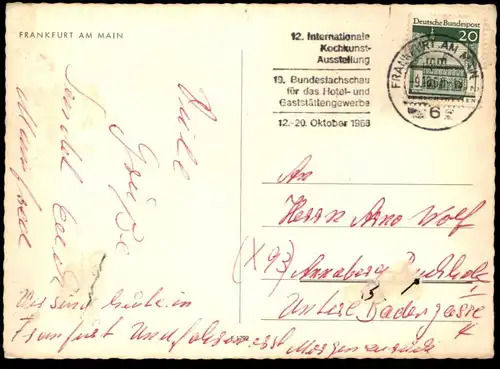 FRANKFURT AM MAIN
12. Internationale
Kochkunst-
Ausstellung
13. Bundesfachschau
für das Hotel- und
Gaststättengewerbe
12.-20. Oktober 1968
Deutsche Bundespost
20
FRANKFURT AM MAIN
6
Viele
Grüße
sendet Euch
Manfred
Wir sind heute in
Frankfurt und fahren erst
Morgen zurück
An
Herrn Arno Wolf
(X 93)
Annaberg Buchholz
Untere Badergasse